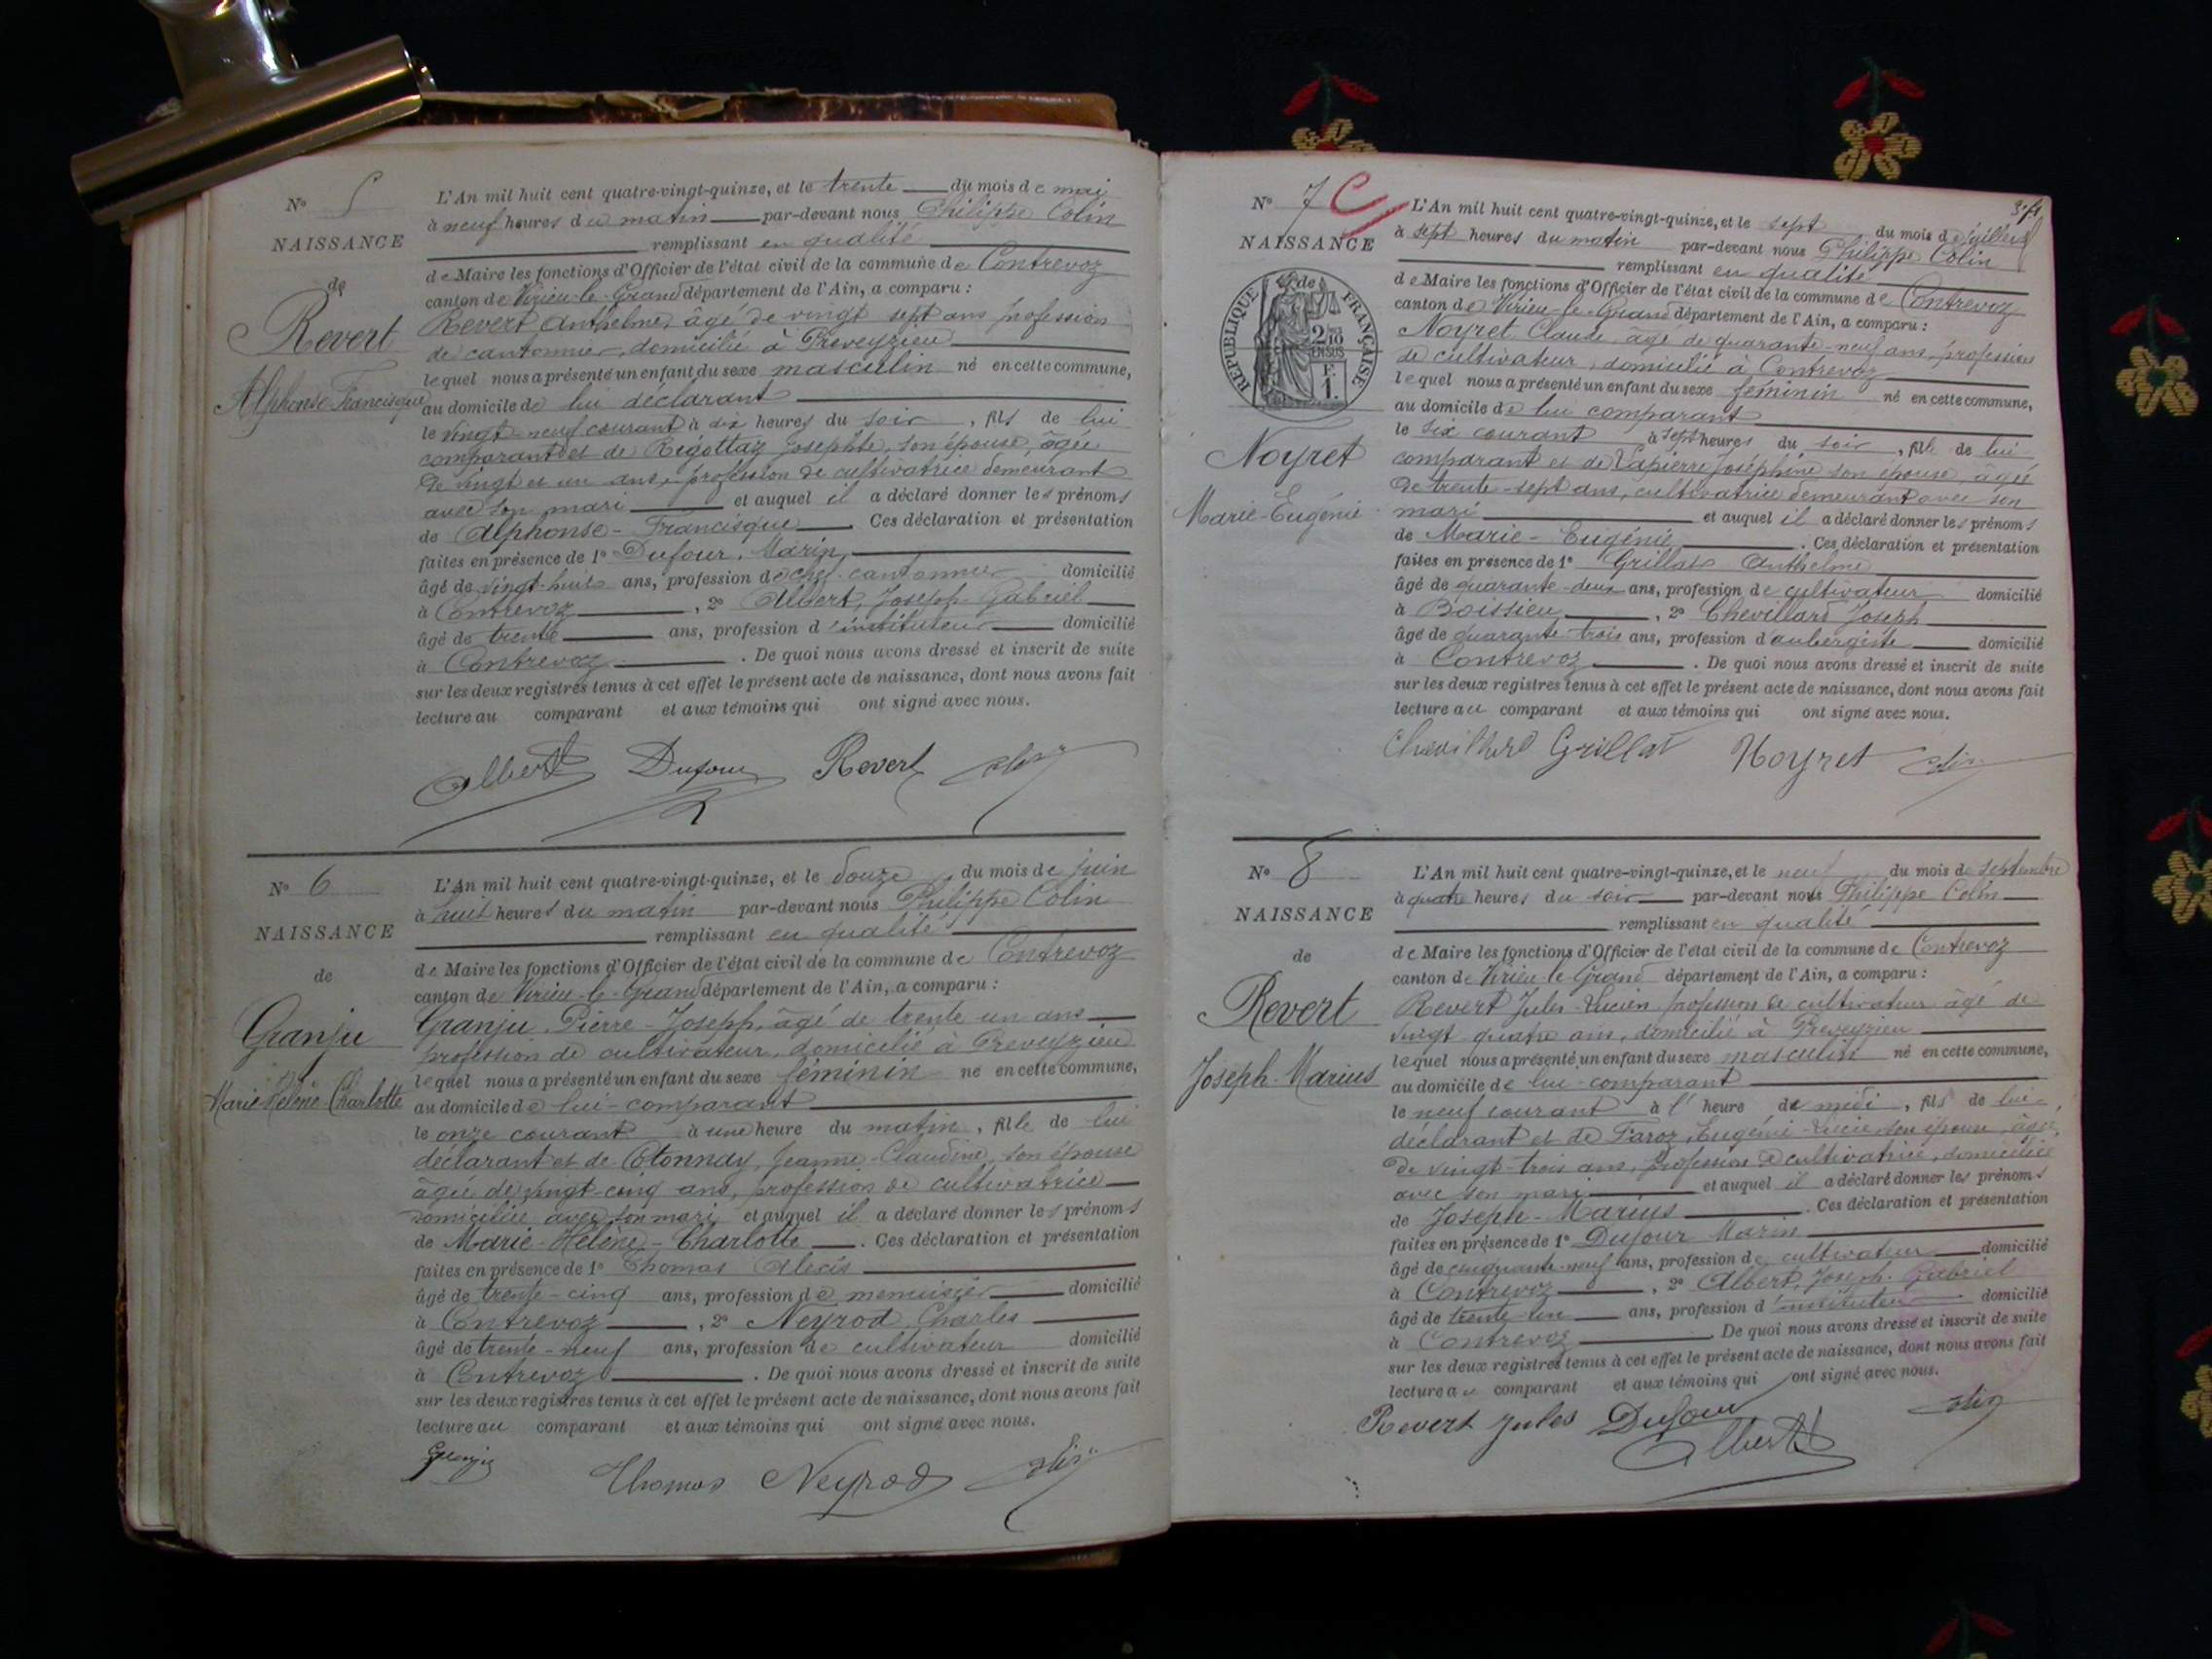 N° 5
NAISSANCE
de
Revert
Alphonse Francisque
L'An mil huit cent quatre-vingt-quinze, et le trente du mois de mai
à neuf heures du matin par-devant nous Philippe Colin
remplissant en qualité
de Maire les fonctions d'Officier de l'état civil de la commune de Contrevoz
canton de Virieu-le-Grand département de l'Ain, a comparu :
Revert Anthelme, âgé de vingt sept ans profession
de cantonnier, domicilié à Preveyzieu
lequel nous a présenté un enfant du sexe masculin né en cette commune,
au domicile de lui déclarant
le vingt-neuf courant à dix heures du soir, fils de lui
comparant et de Rigottaz Josephte, son épouse, âgée
de vingt et un ans, profession de cultivatrice demeurant
avec son mari et auquel il a déclaré donner les prénoms
de Alphonse-Francisque. Ces déclaration et présentation
faites en présence de 1° Dufour, Marin,
âgé de vingt-huit ans, profession de chef-cantonnier domicilié
à Contrevoz, 2° Albert, Joseph Gabriel
âgé de trente ans, profession d'instituteur domicilié
à Contrevoz. De quoi nous avons dressé et inscrit de suite
sur les deux registres tenus à cet effet le présent acte de naissance, dont nous avons fait
lecture au comparant et aux témoins qui ont signé avec nous.
Albert Dufour Revert Colin
N° 6
NAISSANCE
de
Granju
Marie-Hélène-Charlotte
L'An mil huit cent quatre-vingt-quinze, et le douze du mois de juin
à huit heures du matin par-devant nous Philippe Colin
remplissant en qualité
de Maire les fonctions d'Officier de l'état civil de la commune de Contrevoz
canton de Virieu-le-Grand département de l'Ain, a comparu :
Granju Pierre-Joseph, âgé de trente un ans
profession de cultivateur, domicilié à Preveyzieu
lequel nous a présenté un enfant du sexe féminin né en cette commune,
au domicile de lui-comparant
le onze courant à une heure du matin, fille de lui
déclarant et de Jeanne-Claudine, son épouse
âgée de vingt-cinq ans, profession de cultivatrice
domiciliée avec son mari et auquel il a déclaré donner les prénoms
de Marie-Hélène-Charlotte. Ces déclaration et présentation
faites en présence de 1° Thomas Alexis
âgé de trente-cinq ans, profession de menuisier domicilié
à Contrevoz, 2° Neyrod Charles
âgé de trente-neuf ans, profession de cultivateur domicilié
à Contrevoz. De quoi nous avons dressé et inscrit de suite
sur les deux registres tenus à cet effet le présent acte de naissance, dont nous avons fait
lecture au comparant et aux témoins qui ont signé avec nous.
Granju Thomas Neyrod Colin
N° 7
NAISSANCE
de
RÉPUBLIQUE FRANÇAISE
2/10 EN SUS
F. 1.
Noyret
Marie-Eugénie
L'An mil huit cent quatre-vingt-quinze, et le sept du mois de juillet
à sept heures du matin par-devant nous Philippe Colin
remplissant en qualité
de Maire les fonctions d'Officier de l'état civil de la commune de Contrevoz
canton de Virieu-le-Grand département de l'Ain, a comparu :
Noyret Claude, âgé de quarante-neuf ans, profession
de cultivateur, domicilié à Contrevoz
lequel nous a présenté un enfant du sexe féminin né en cette commune,
au domicile de lui comparant
le six courant à sept heures du soir, fille de lui
comparant et de Lapierre Joséphine son épouse, âgée
de trente-sept ans, cultivatrice demeurant avec son
mari et auquel il a déclaré donner les prénoms
de Marie-Eugénie. Ces déclaration et présentation
faites en présence de 1° Grillat Anthelme
âgé de quarante-deux ans, profession de cultivateur domicilié
à Boissieu, 2° Chevillard Joseph
âgé de quarante-trois ans, profession d'aubergiste domicilié
à Contrevoz. De quoi nous avons dressé et inscrit de suite
sur les deux registres tenus à cet effet le présent acte de naissance, dont nous avons fait
lecture au comparant et aux témoins qui ont signé avec nous.
Chevillard Grillat Noyret Colin
N° 8
NAISSANCE
de
Revert
Joseph-Marius
L'An mil huit cent quatre-vingt-quinze, et le neuf du mois de septembre
à quatre heures du soir par-devant nous Philippe Colin
remplissant en qualité
de Maire les fonctions d'Officier de l'état civil de la commune de Contrevoz
canton de Virieu-le-Grand département de l'Ain, a comparu :
Revert Jules-Lucien profession de cultivateur âgé de
vingt quatre ans, domicilié à Preveyzieu
lequel nous a présenté un enfant du sexe masculin né en cette commune,
au domicile de lui-comparant
le neuf courant à l'heure de midi, fils de lui
déclarant et de Faroz, Eugénie-Lucie, son épouse, âgée
de vingt-trois ans, profession de cultivatrice, domiciliée
avec son mari et auquel il a déclaré donner les prénoms
de Joseph-Marius. Ces déclaration et présentation
faites en présence de 1° Dufour Marin
âgé de cinquante-neuf ans, profession de cultivateur domicilié
à Contrevoz, 2° Albert, Joseph-Gabriel
âgé de trente-un ans, profession d'instituteur domicilié
à Contrevoz De quoi nous avons dressé et inscrit de suite
sur les deux registres tenus à cet effet le présent acte de naissance, dont nous avons fait
lecture au comparant et aux témoins qui ont signé avec nous.
Revert Jules Dufour Colin
Albert